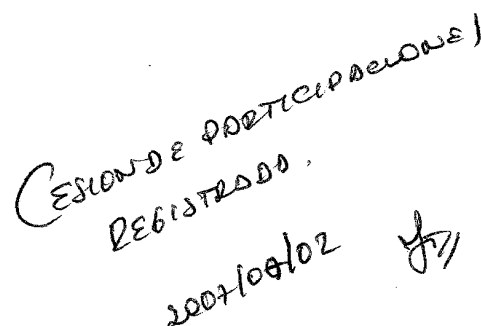 CESION DE PARTICIPACIONES
REGISTRADO.